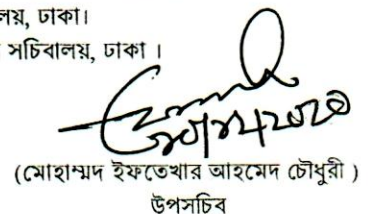 লয়, ঢাকা।
সচিবালয়, ঢাকা ।
(মোহাম্মদ ইফতেখার আহমেদ চৌধুরী )
উপসচিব